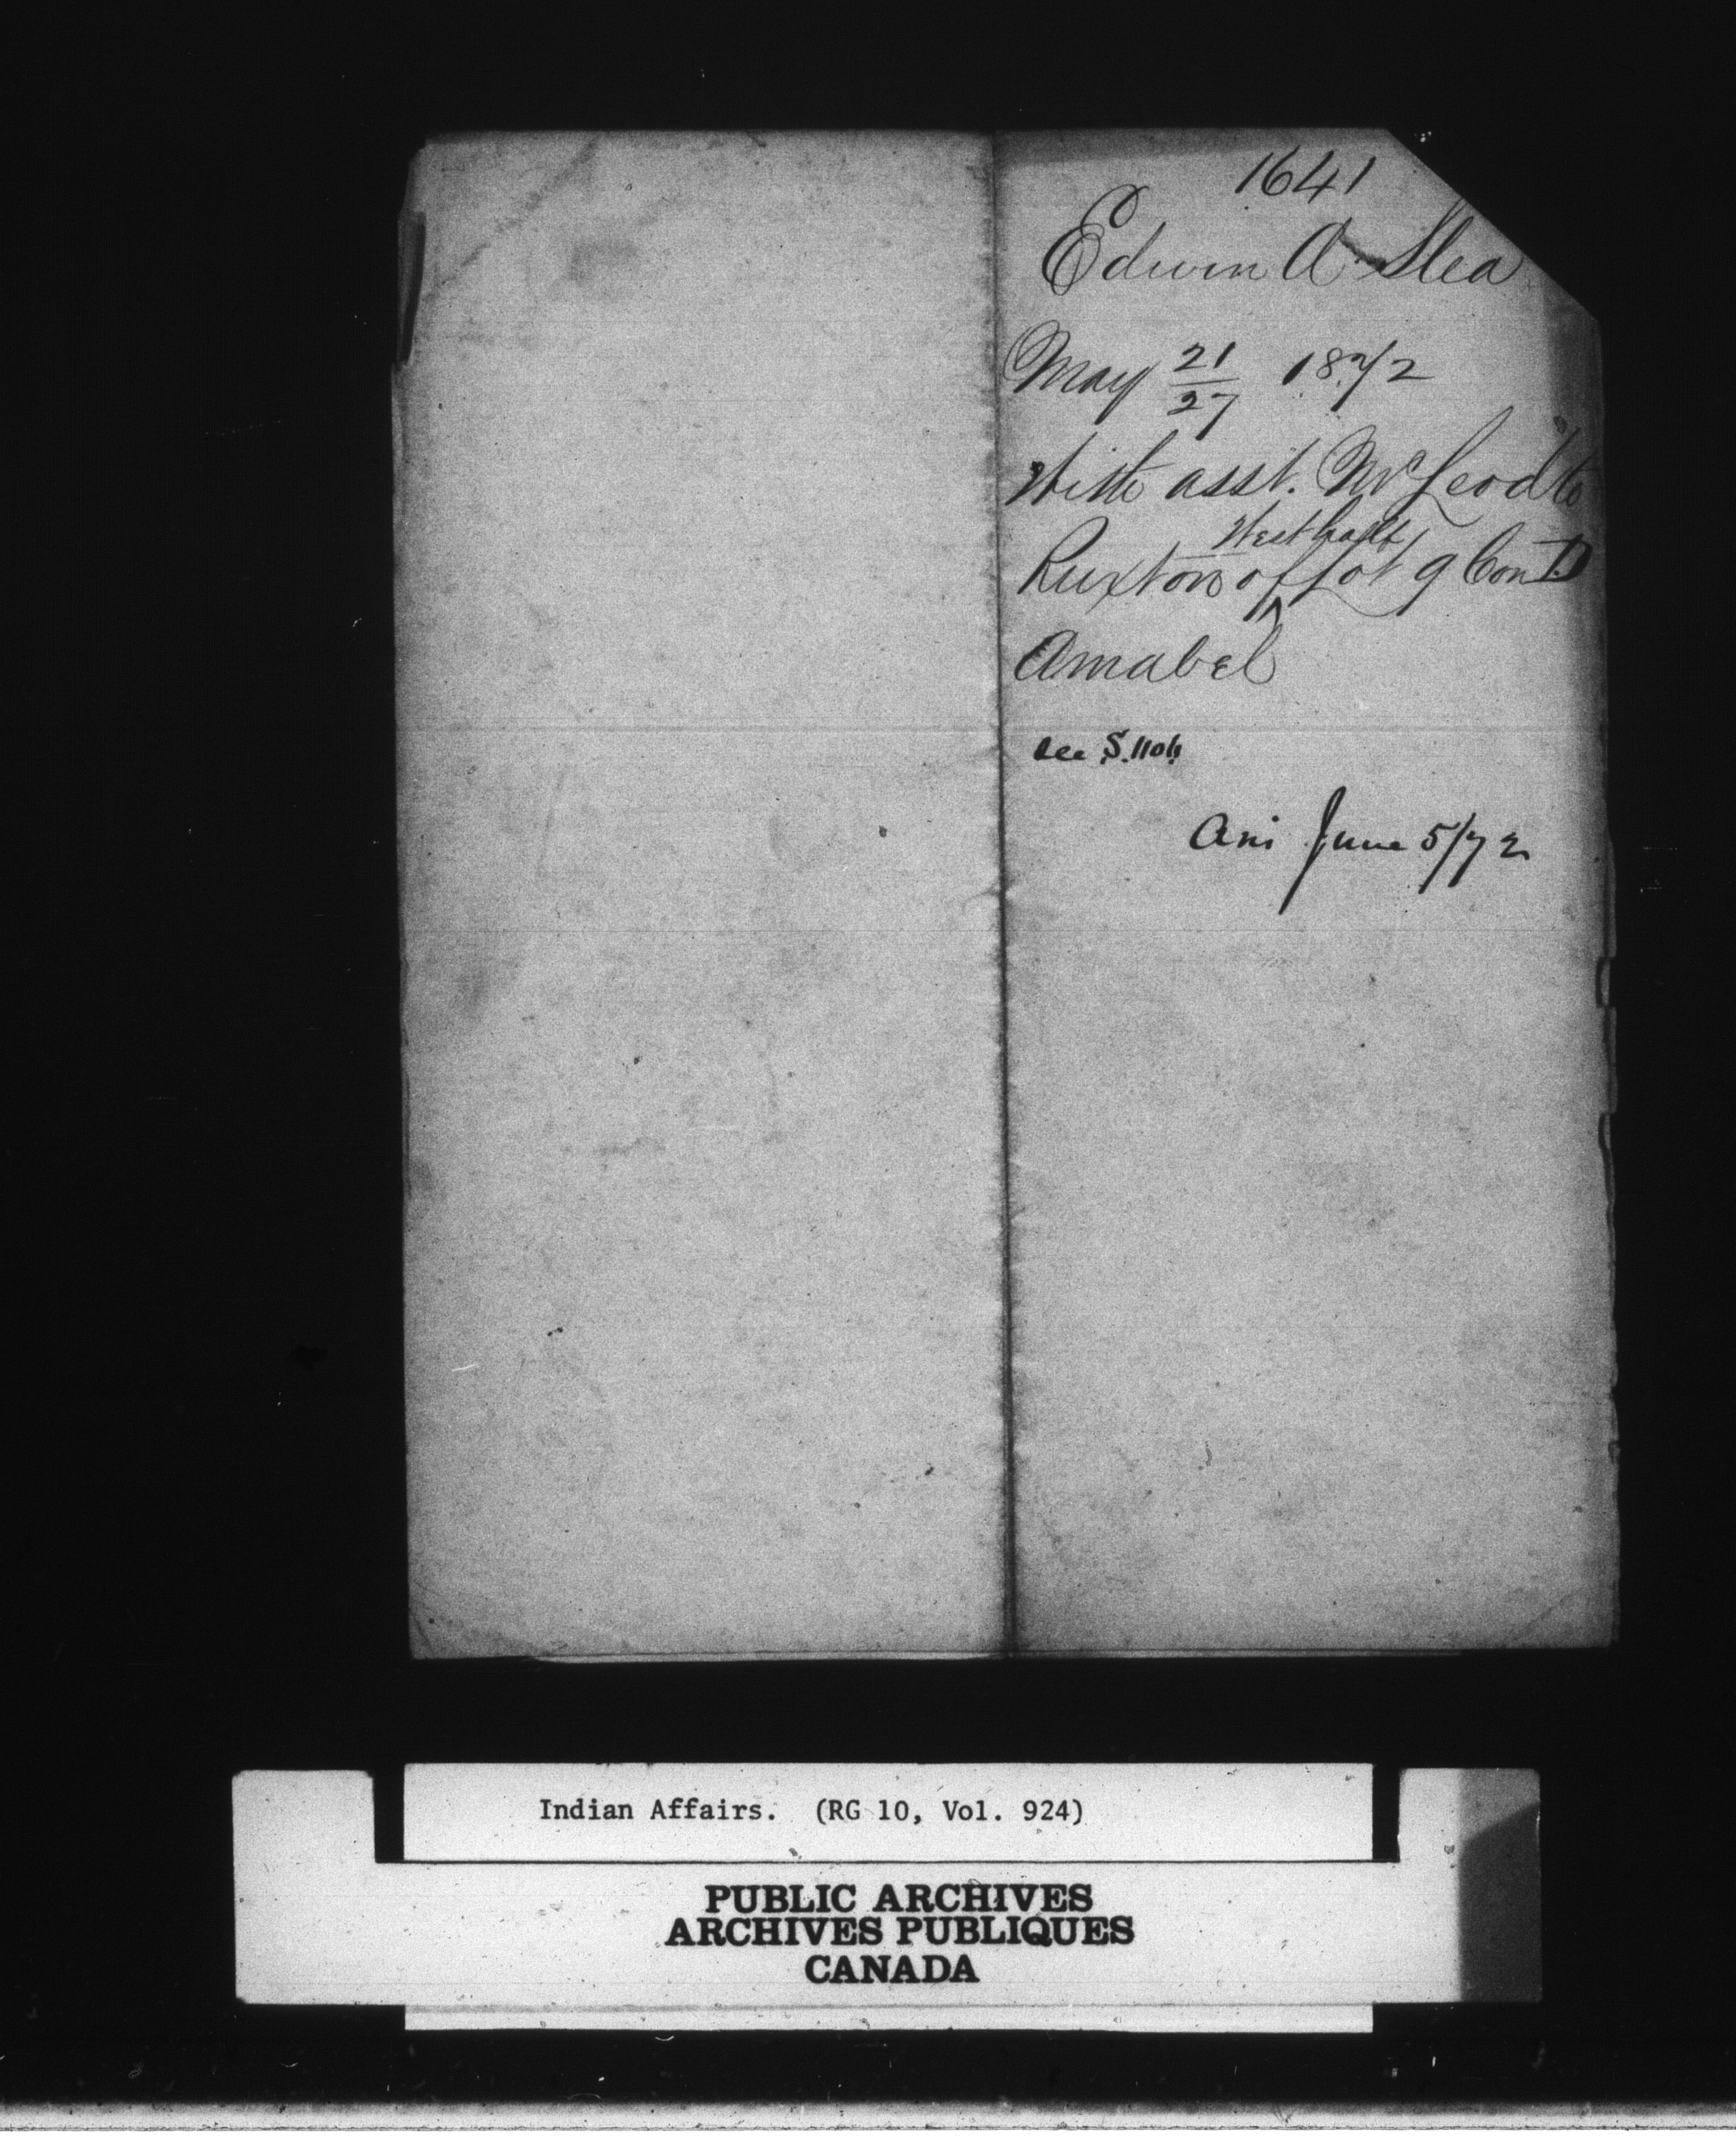 1641
Edwin A Slea
May 21/27 1872
With asst. McLeod to
West half
Ruxton of Lot 9 Con D
Amabel
see S.1104
Ans June 5/72
Indian Affairs. (RG 10, Vol. 924)
PUBLIC ARCHIVES
ARCHIVES PUBLIQUES
CANADA